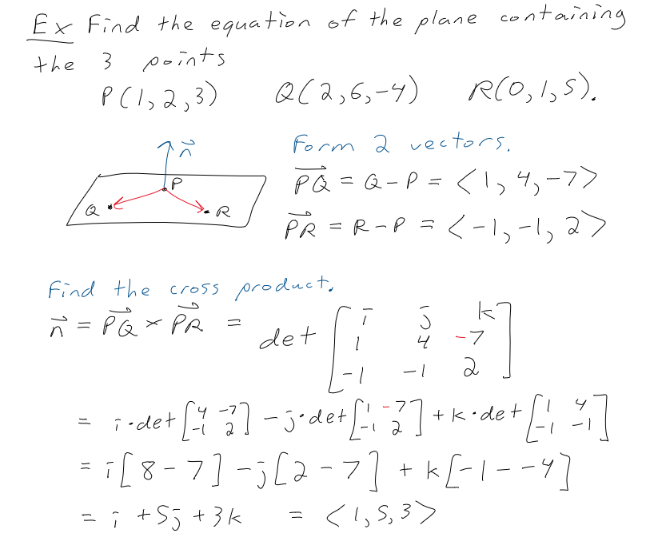 Ex Find the equation of the plane containing
the 3 points
P(1,2,3) Q(2,6,-4) R(0,1,5).
n⃗
P
Q
R
Form 2 vectors.
PQ⃗ = Q-P = <1, 4, -7>
PR⃗ = R-P = <-1, -1, 2>
Find the cross product.
n⃗ = PQ⃗ × PR⃗ = det [i j k
1 4 -7
-1 -1 2]
= i·det[4 -7; -1 2] - j·det[1 -7; -1 2] + k·det[1 4; -1 -1]
= i[8-7] -j[2-7] + k[-1--4]
= i +5j +3k = <1,5,3>